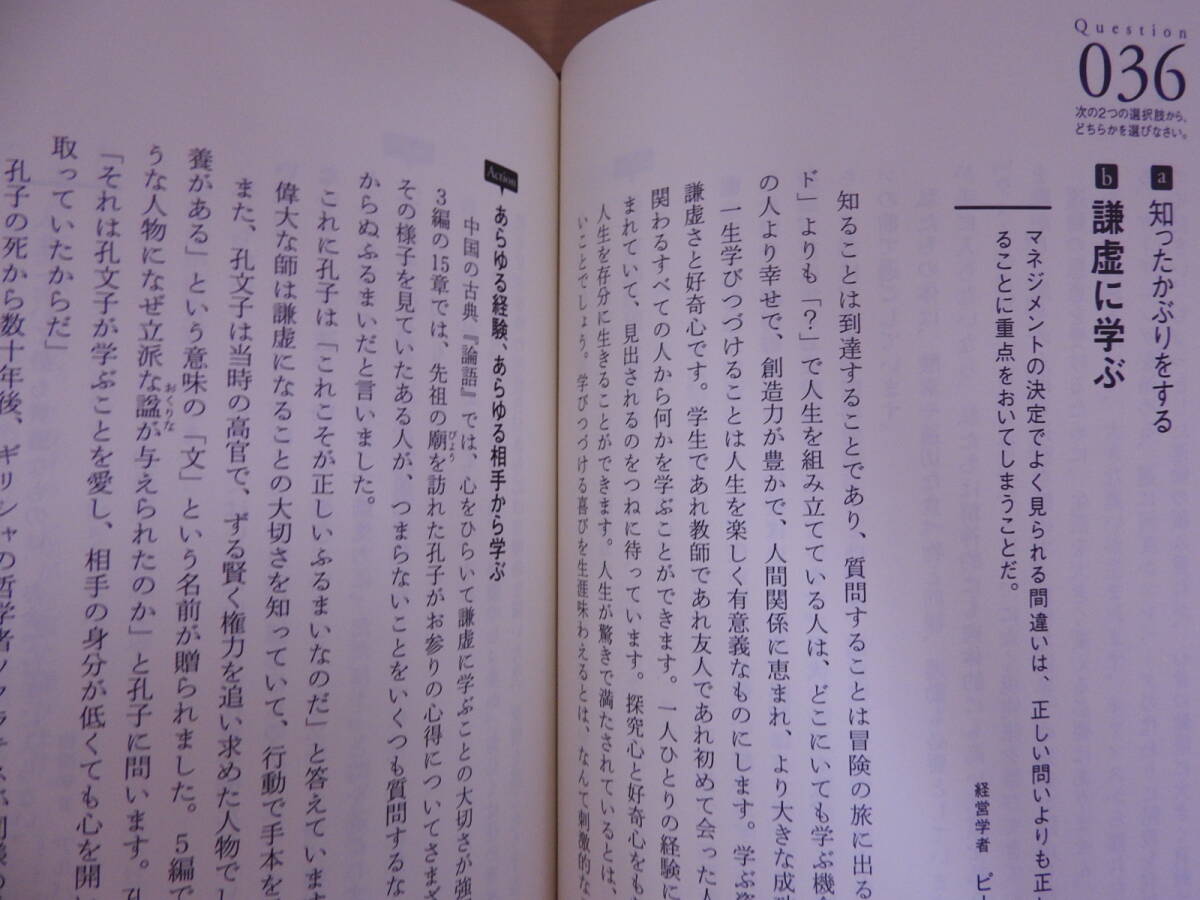 Question
036
次の2つの選択肢から、
どちらかを選びなさい。
a 知ったかぶりをする
b 謙虚に学ぶ
マネジメントの決定でよく見られる間違いは、正しい問いよりも正
ることに重点をおいてしまうことだ。
経営学者 ピー
知ることは到達することであり、質問することは冒険の旅に出る
ド」よりも「?」で人生を組み立てている人は、どこにいても学ぶ機
の人より幸せで、創造力が豊かで、人間関係に恵まれ、より大きな成
一生学びつづけることは人生を楽しく有意義なものにします。学ぶ
謙虚さと好奇心です。学生であれ教師であれ友人であれ初めて会った人
関わるすべての人から何かを学ぶことができます。一人ひとりの経験に
まれていて、見出されるのをつねに待っています。探究心と好奇心をも
人生を存分に生きることができます。人生が驚きで満たされているとは、
いことでしょう。学びつづける喜びを生涯味わえるとは、なんて刺激的な
Action あらゆる経験、あらゆる相手から学ぶ
中国の古典『論語』では、心をひらいて謙虚に学ぶことの大切さが強
3編の15章では、先祖の廟びょうを訪れた孔子がお参りの心得についてさまざ
その様子を見ていたある人が、つまらないことをいくつも質問するな
からぬふるまいだと言いました。
これに孔子は「これこそが正しいふるまいなのだ」と答えていま
偉大な師は謙虚になることの大切さを知っていて、行動で手本を
また、孔文子は当時の高官で、ずる賢く権力を追い求めた人物でし
養がある」という意味の「文」という名前が贈られました。5編で
うな人物になぜ立派な諡おくりなが与えられたのか」と孔子に問います。孔
「それは孔文子が学ぶことを愛し、相手の身分が低くても心を開
取っていたからだ」
孔子の死から数十年後、ギリシャの哲学者ソクラテスも同様の